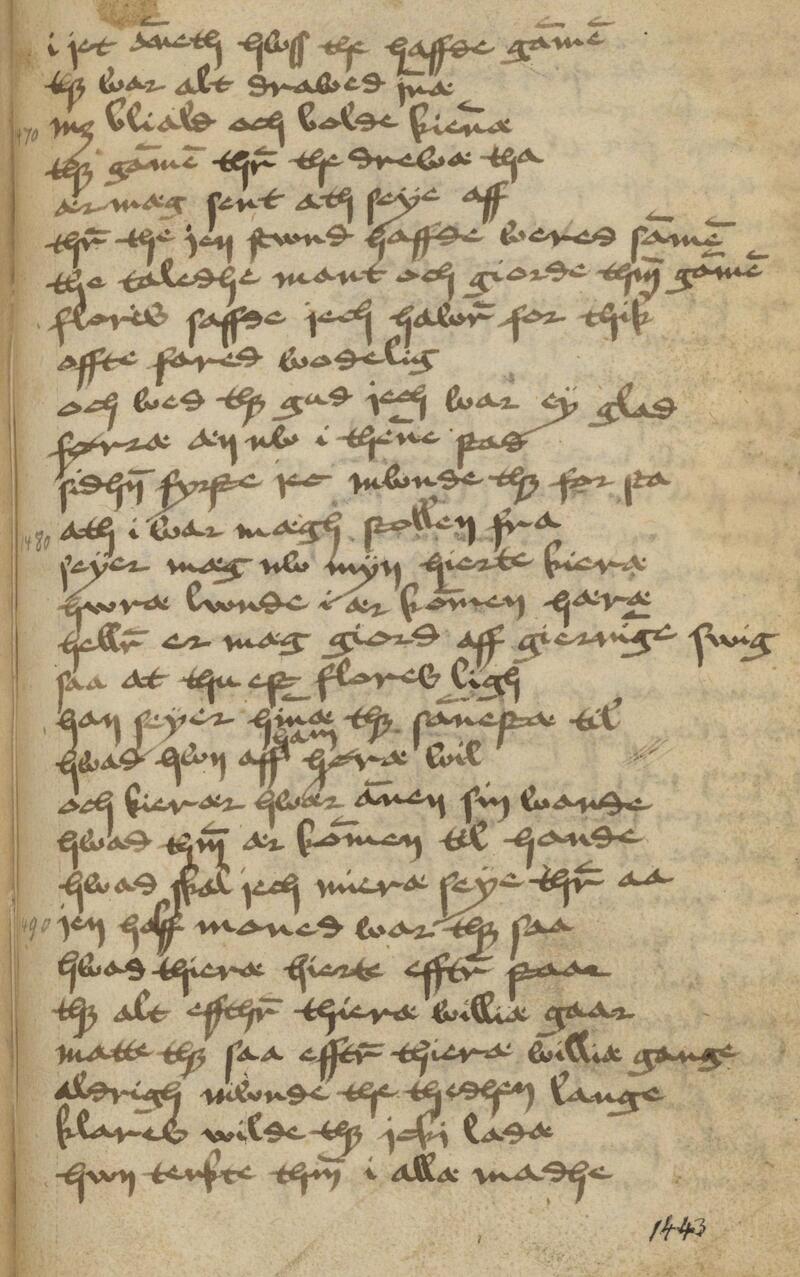 i jet ān̄eth hwss the haffde gām̄e
thꝫ war alt drawed jn̄æ
1470 mꝫ bliald och bolde kien̄æ
thꝫ gām̄e thr̄ the drewæ tha
ær mæg sent ath seye aff
thr̄ the jen stwnd haffde weres sām̄e
the taledhe mant och giorde thm̄ gām̄e
flores saffde jech hawr̄ for thik
offte fared wodelig
och wed thꝫ gud jech war ey glad
førræ æn nw i then̄e stad
sidhn̄ fyrste jec mwnde thꝫ for sta
1480 ath i war mægh stollen fra
seyer mæg nw myn hierte kieræ
hworæ lwnde i ær kom̄en hæræ
hellr̄ er mæg giord aff giernīge swig
saa at thu est flores ligh
han seyer hin̄æ thꝫ san̄estæ til
hwad hwn aff ham høræ wil
och kierær hwær ān̄en sin wande
hwad thm̄ ær kom̄en til hande
hwad skal jech mieræ seye thr̄ aa
1490 jen halff moned war thꝫ saa
hwad thieræ hierte efftr̄ staar
thꝫ alt effthr̄ thieræ williæ gaar
matte thꝫ saa efftr̄ thieræ williæ gange
aldrigh mwnde the thedhen lange
klares wilde thꝫ jcki ladæ
hwn tenkte thm̄ i allæ madhe
1443